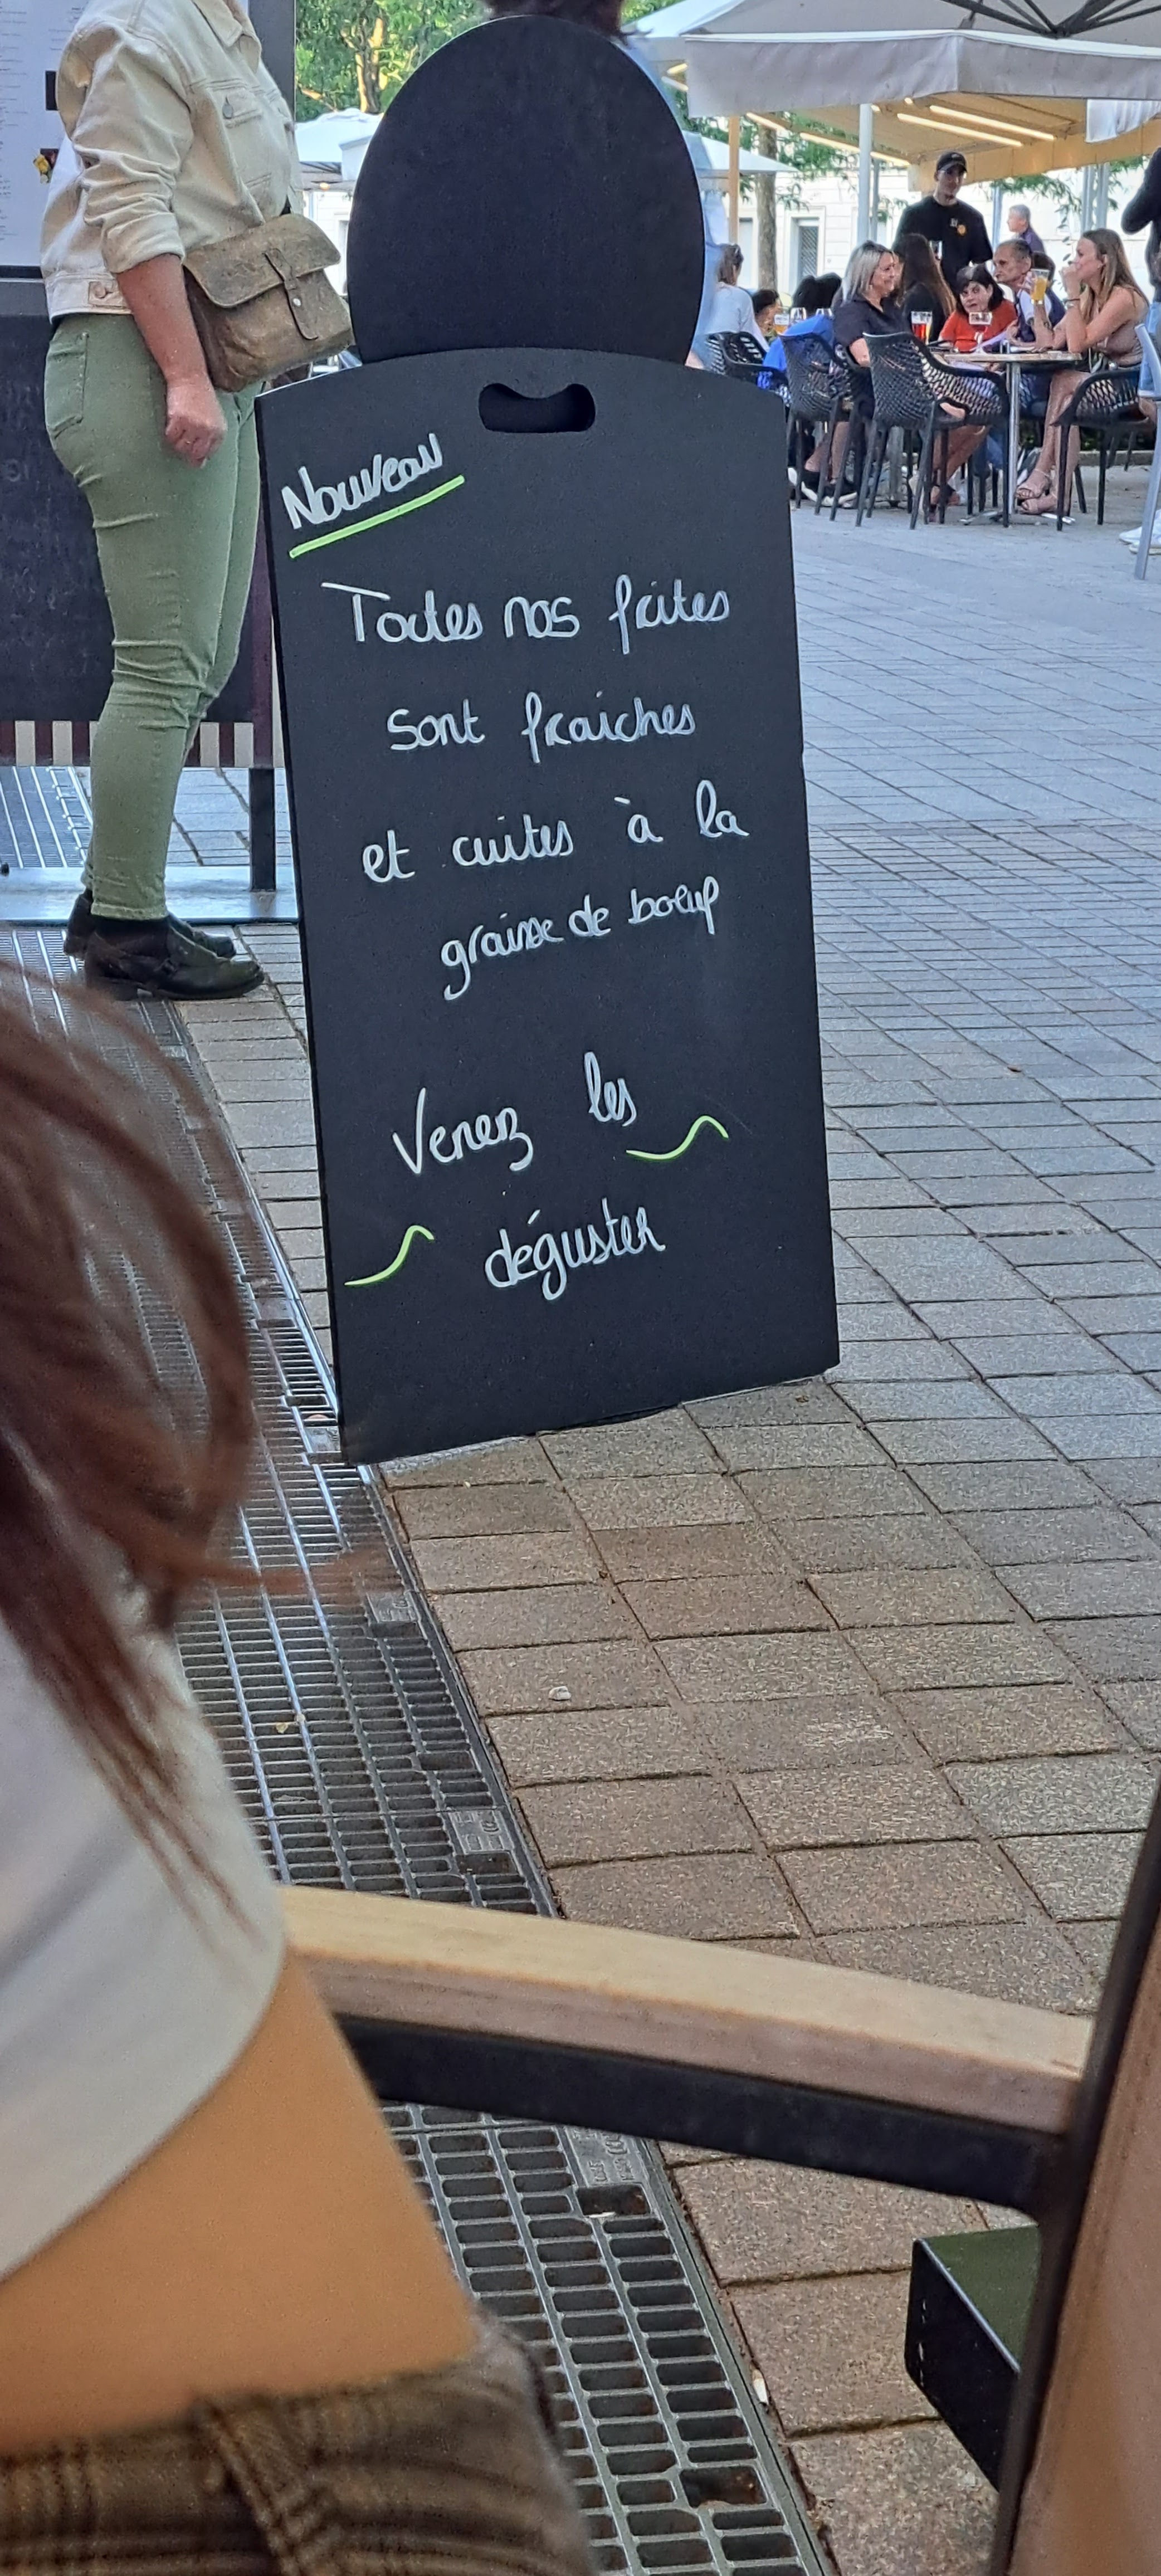 Nouveau
Toutes nos frites
sont fraiches
et cuites à la
graisse de boeuf
Venez les
déguster